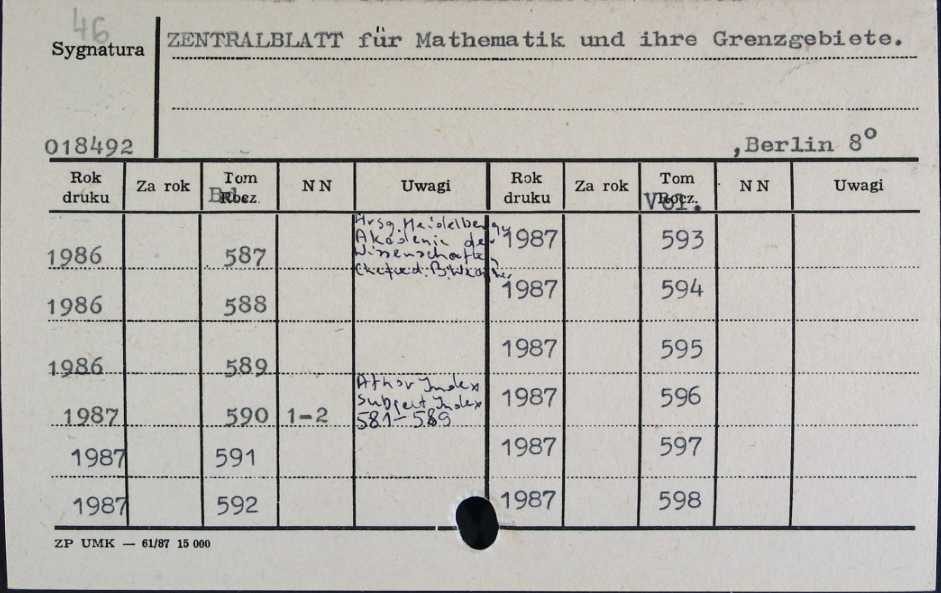 46
Sygnatura
ZENTRALBLATT für Mathematik und ihre Grenzgebiete.
018492
,Berlin 8°
Rok druku Za rok Tom Rocz. Bd. NN Uwagi Rok druku Za rok Tom Rocz. Vol. NN Uwagi
1986 587 Hrsg. Heidelberger Akademie der Wissenschaften Chefred. B. Wegner 1987 593
1986 588 1987 594
1986 589 1987 595
1987 590 1-2 Athor Index Subject Index 581-589 1987 596
1987 591 1987 597
1987 592 1987 598
ZP UMK — 61/87 15 000